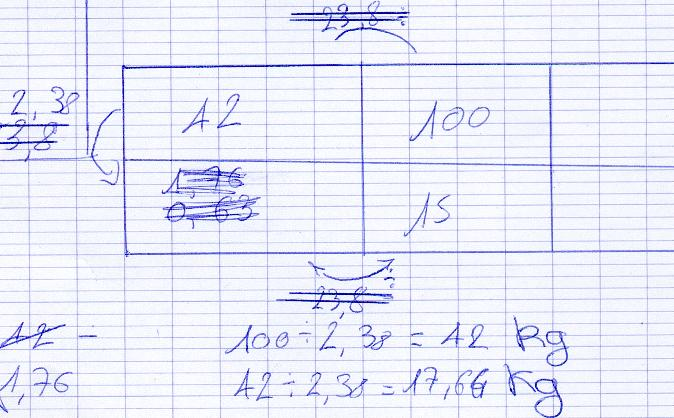 23,8 ÷
2,38
3,8
42 100
1,76
0,63 15
23,8 ÷
42 - 100 ÷ 2,38 = 42 kg
1,76 42 ÷ 2,38 = 17,64 Kg